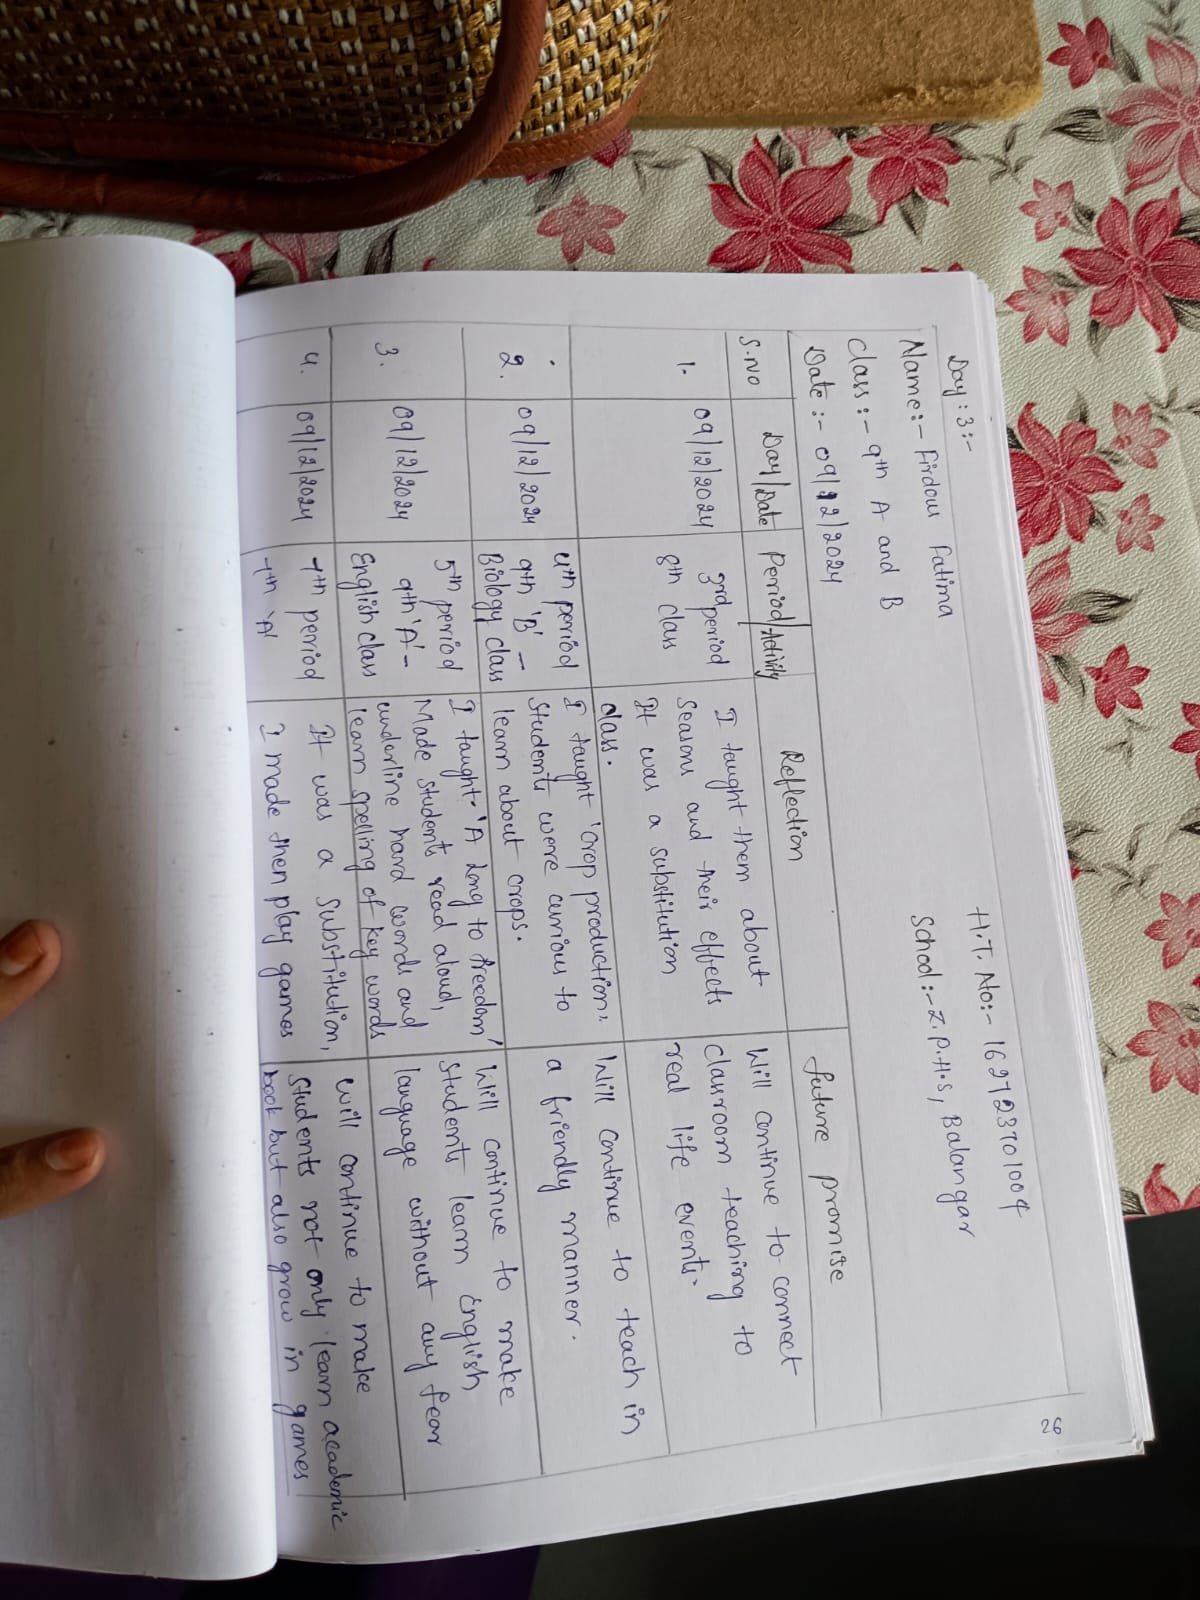 26
Day: 3:-
H.T. No:-
Name:- Firdous Fatima
School:- Z.P.H.S, Balangar
Class:- 9th A and B
Date:- 09/12/2024
S.NO Day/Date Period/Activity Reflection future promise
1. 09/12/2024
3rd period
8th class
I taught them about
seasons and their effects
It was a substitution
class.
Will continue to connect
classroom teaching to
real life events.
2. 09/12/2024
4th period
9th 'B' -
Biology class
I taught 'Crop production".
Students were curious to
learn about crops.
Will continue to teach in
a friendly manner.
3. 09/12/2024
5th period
9th 'A' -
English class
I taught 'A Long to freedom'
Made students read aloud,
underline hard words and
learn spelling of key words
Will continue to make
students learn English
language without any fear
4. 09/12/2024
7th period
7th 'A'
It was a substitution,
I made then play games
will continue to make
students not only learn academic
book but also grow in games